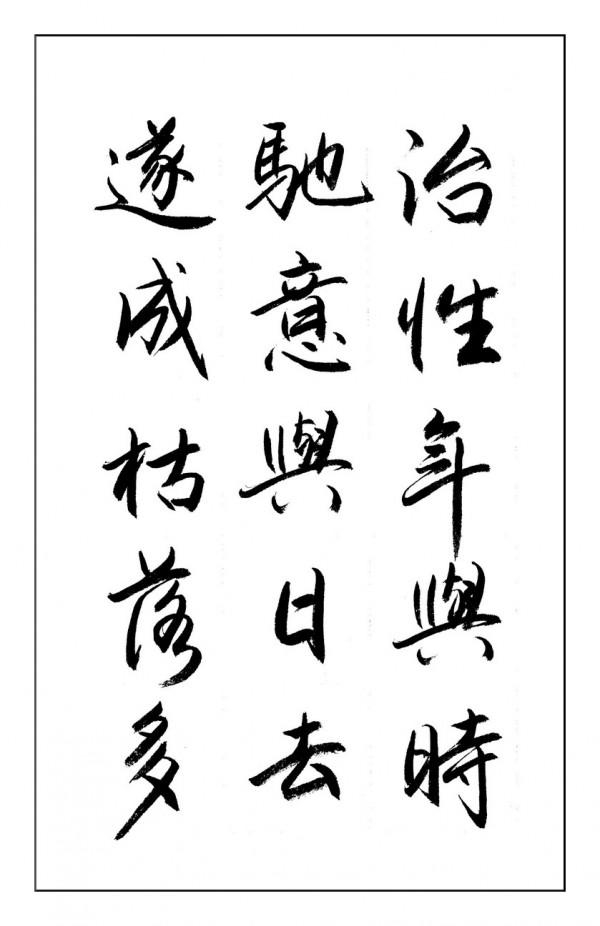 治性年與時
馳意與日去
遂成枯落多